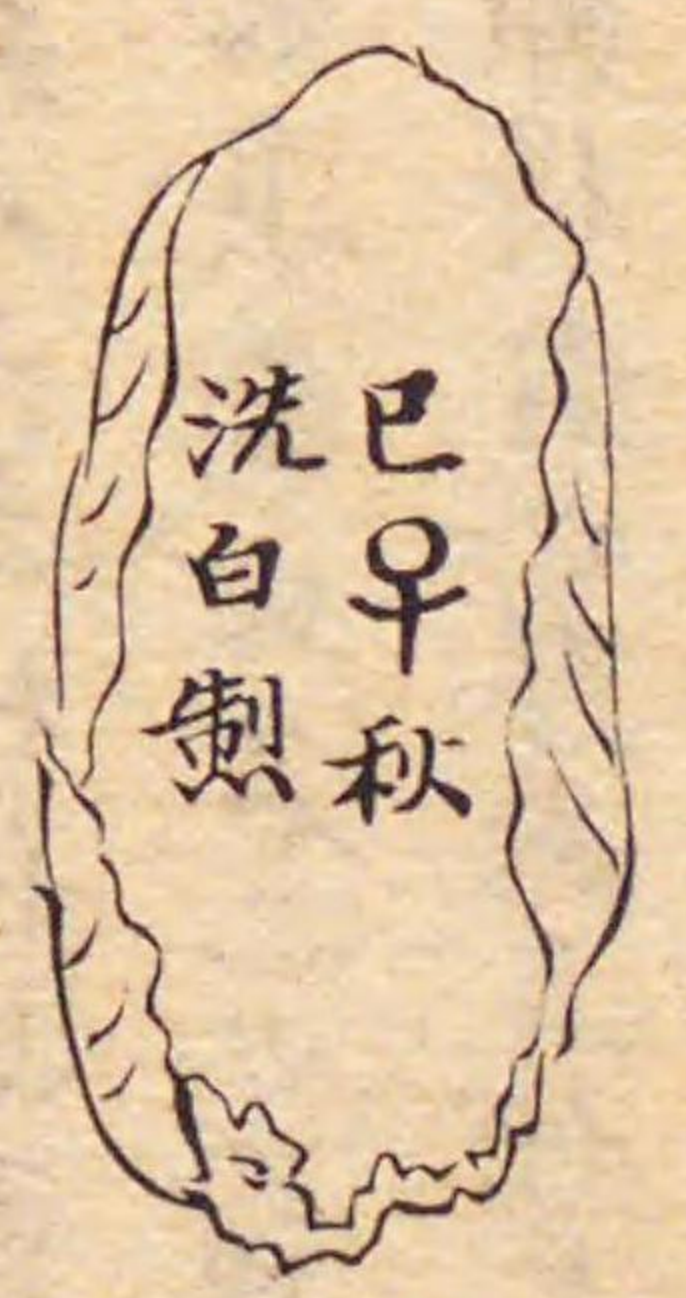 巳秋
洗白製